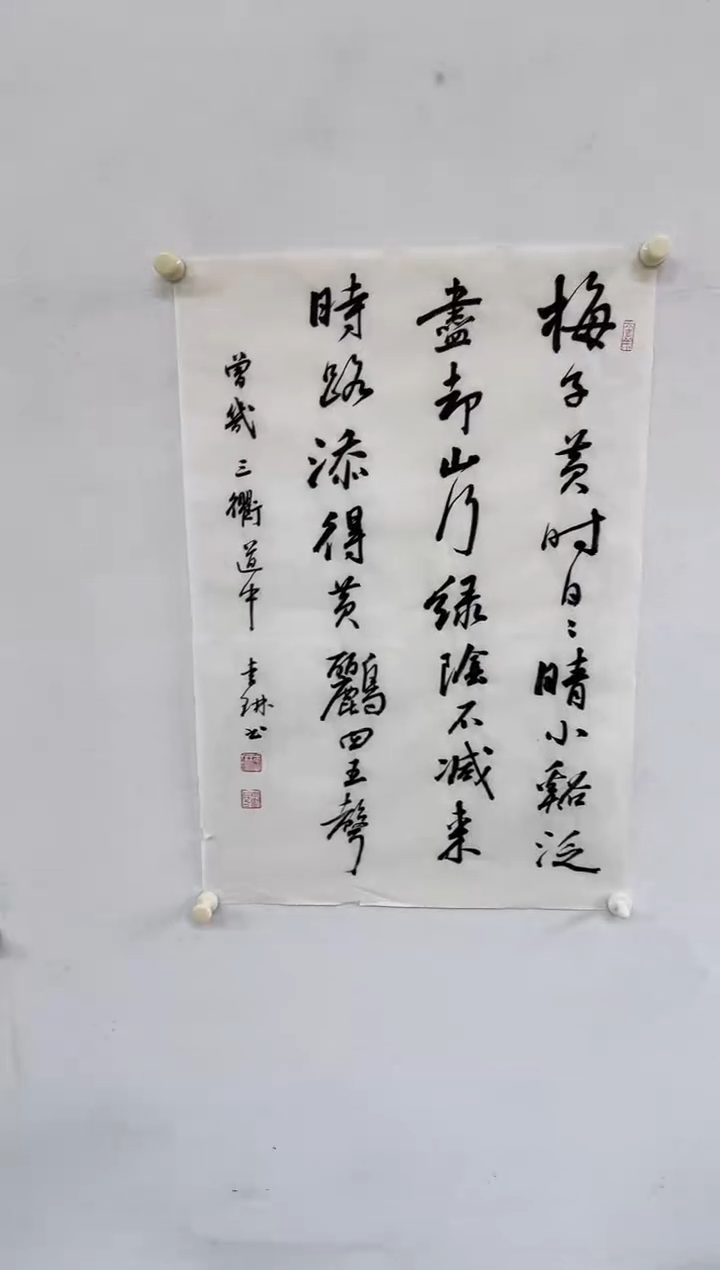 梅子黄时日〻晴小谿泛
盡却山行緑陰不减来
時路添得黄鸝四五聲
曾幾三衢道中
書